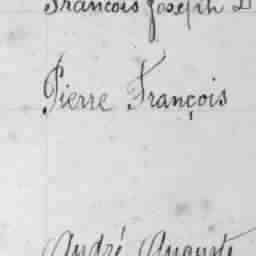 François Joseph D
Pierre François
André Auguste